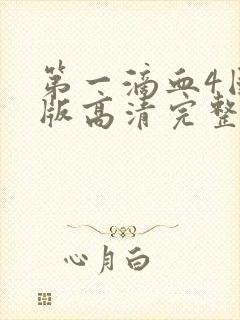 第一滴血4国
版高清完整
心月白